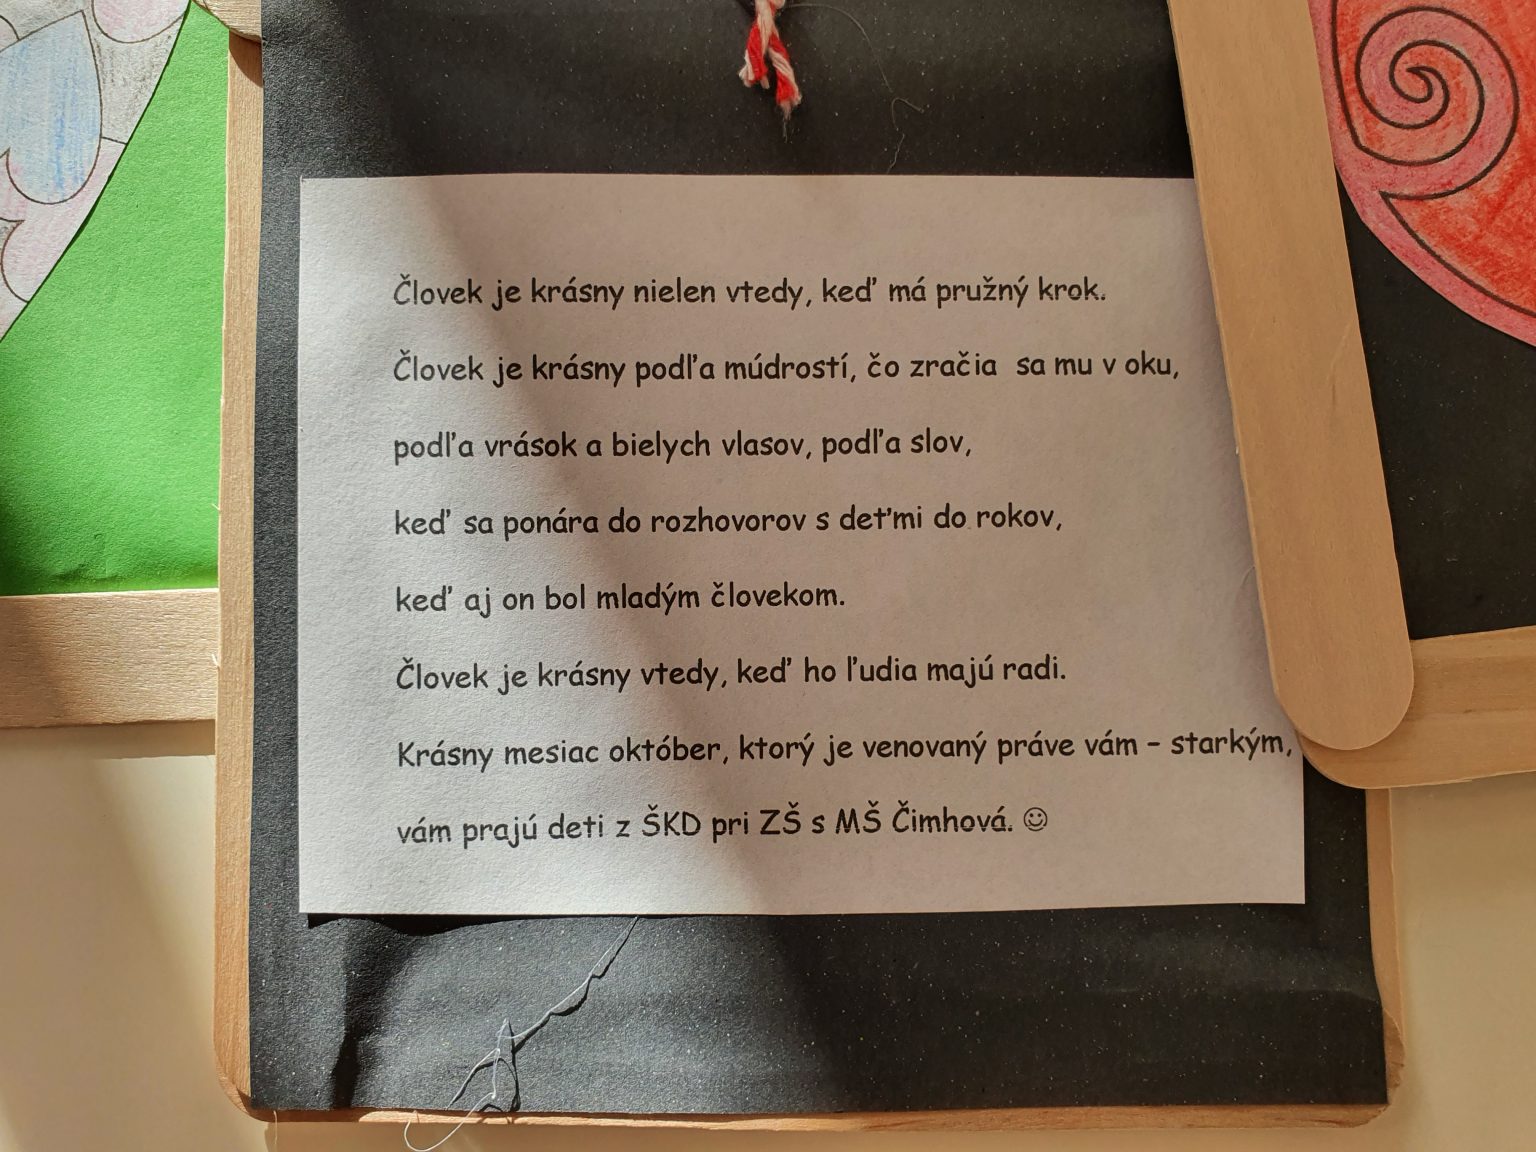 Človek je krásny nielen vtedy, keď má pružný krok.
Človek je krásny podľa múdrostí, čo zračia sa mu v oku,
podľa vrások a bielych vlasov, podľa slov,
keď sa ponára do rozhovorov s deťmi do rokov,
keď aj on bol mladým človekom.
Človek je krásny vtedy, keď ho ľudia majú radi.
Krásny mesiac október, ktorý je venovaný práve vám – starkým,
vám prajú deti z ŠKD pri ZŠ s MŠ Čimhová. ☺